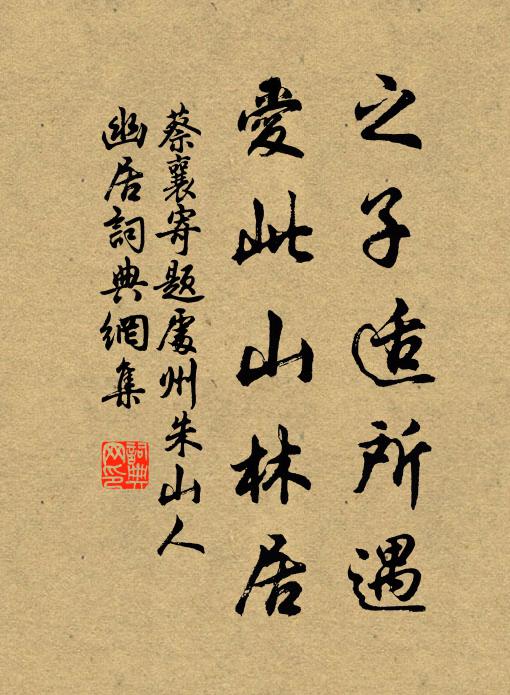 之子适所遇
愛此山林居
蔡襄寄題處州朱山人
幽居詞典網集
詞典网印